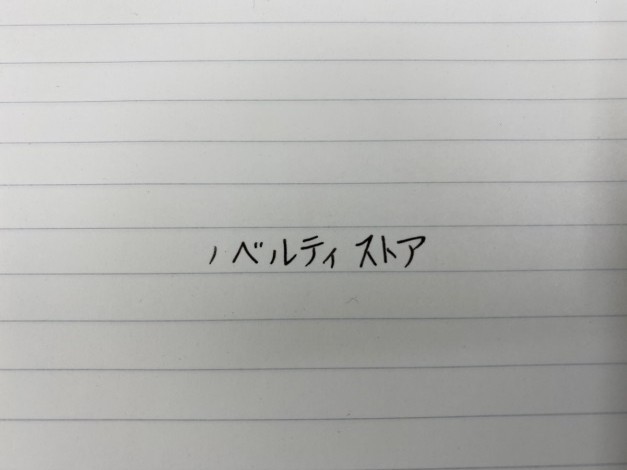 ノベルティストア